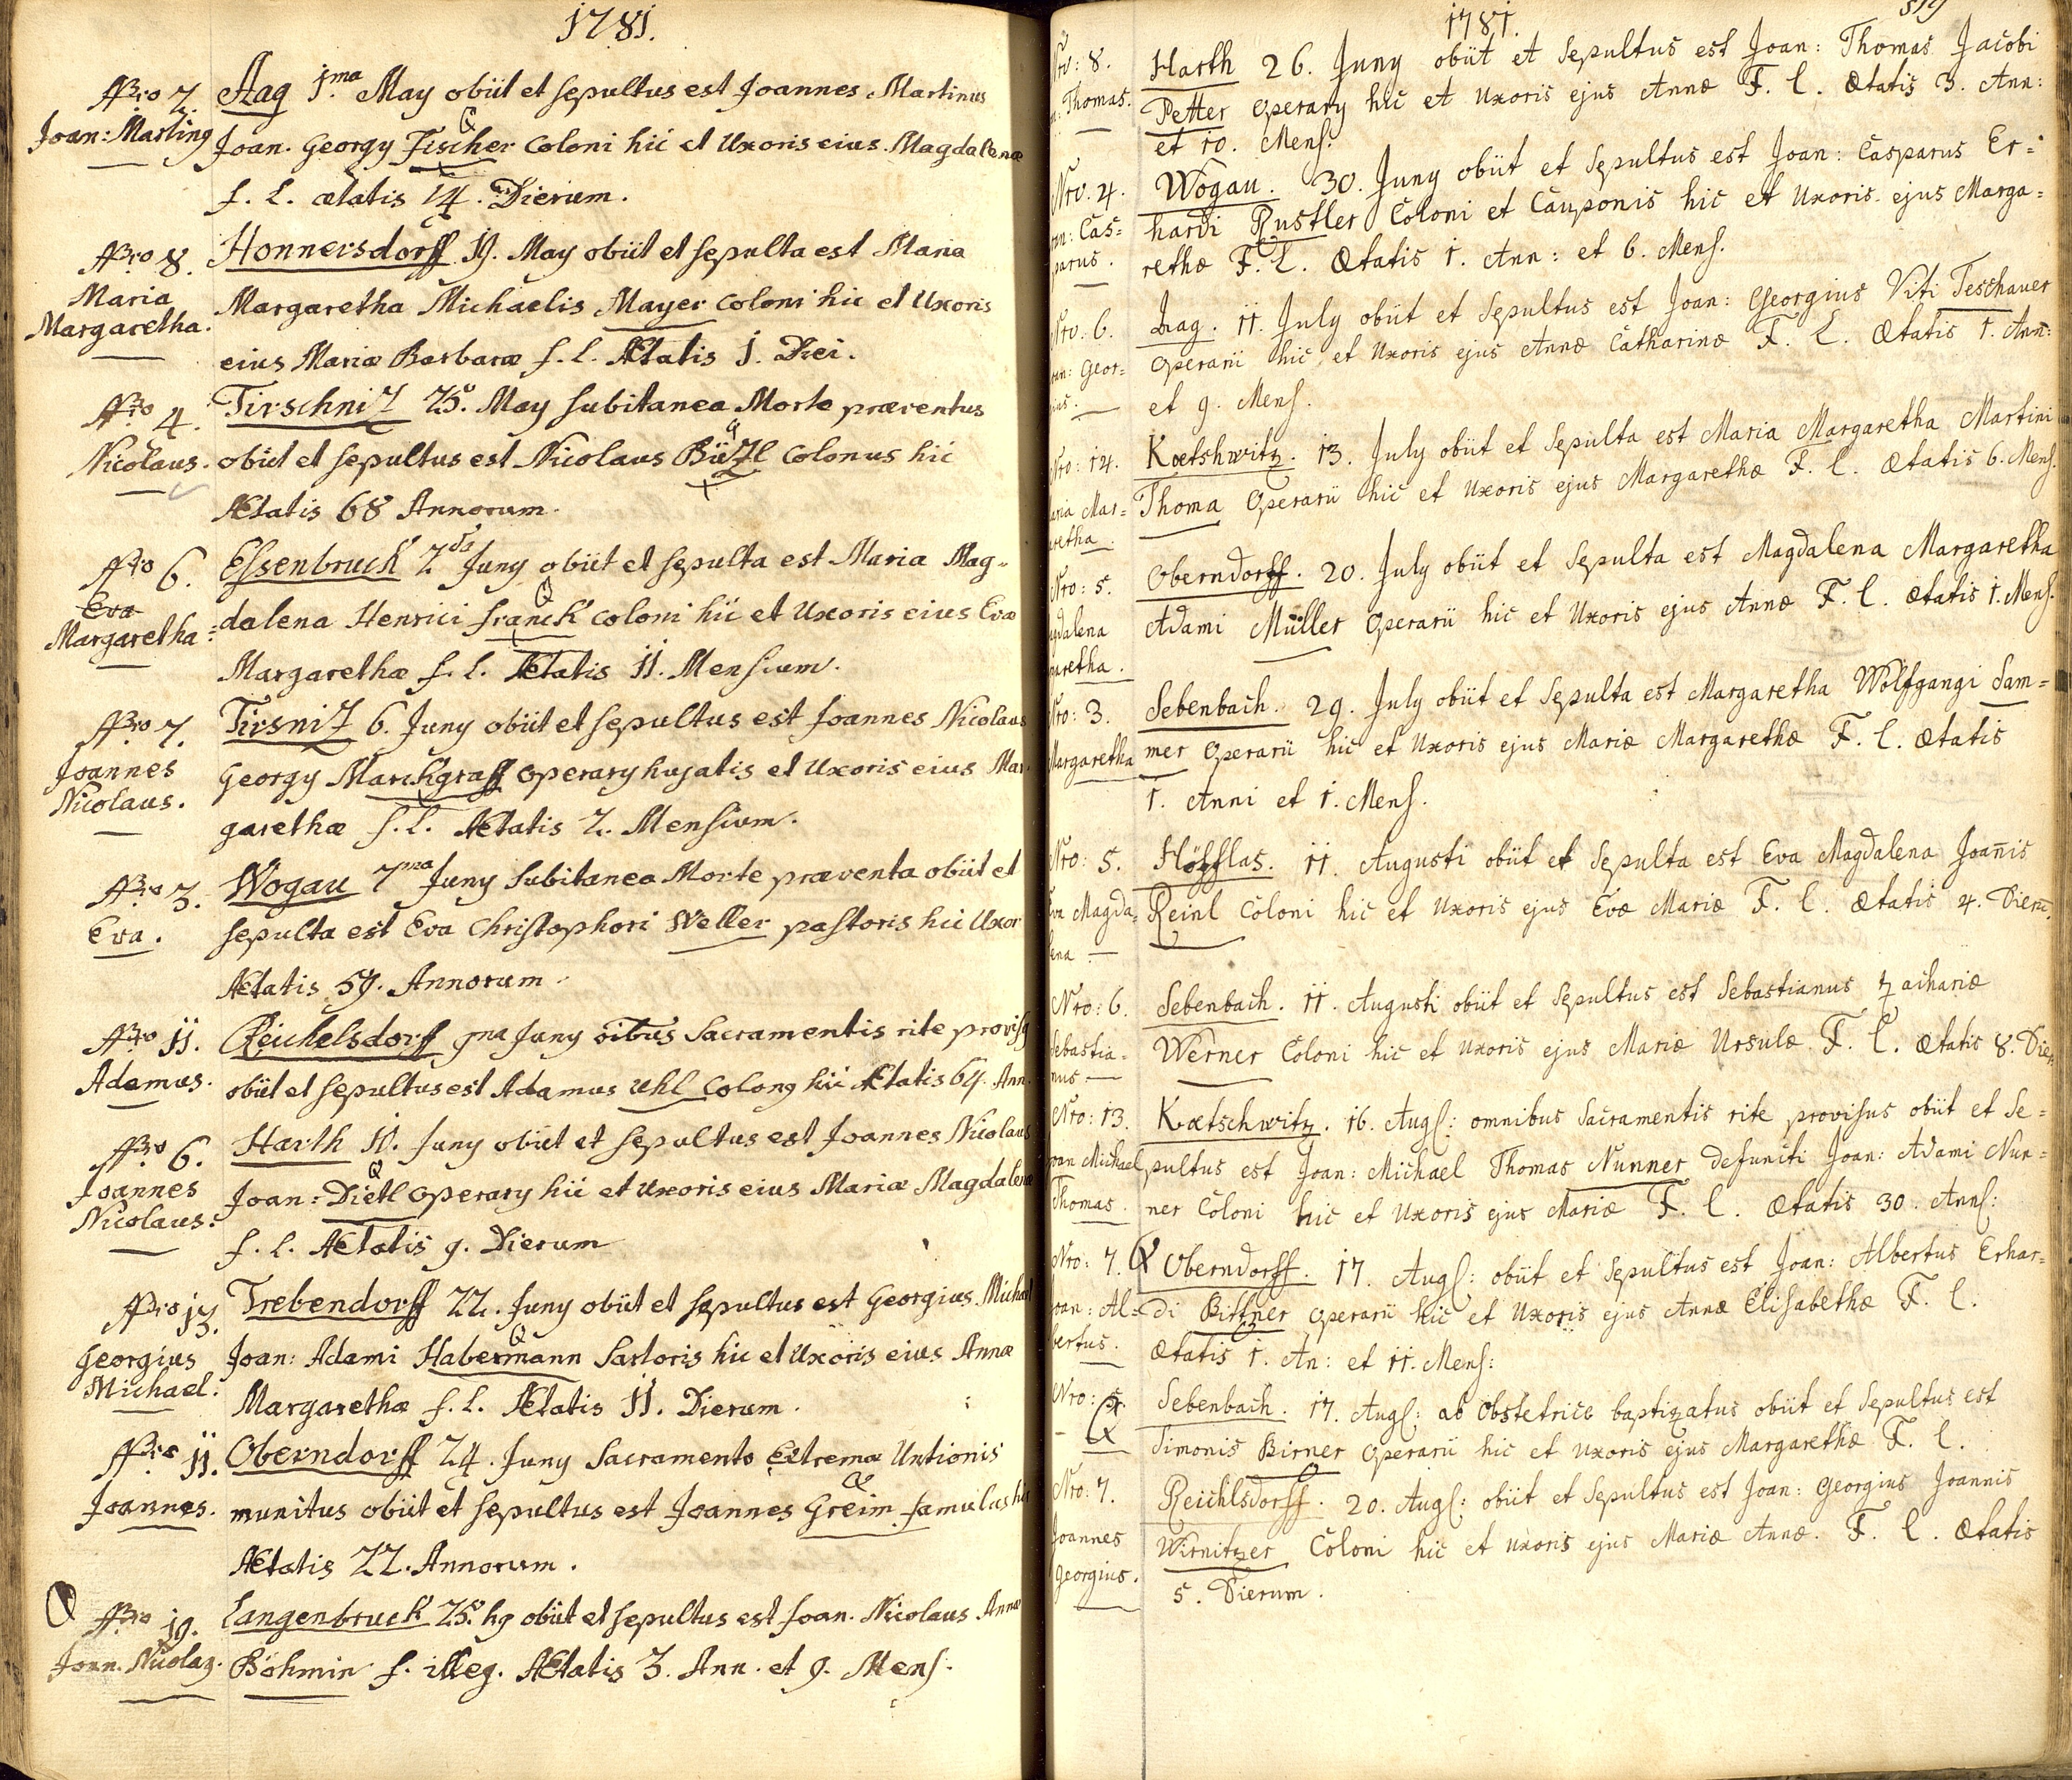 1781.
Nro 2. Aag 1ma May obiit et sepultus est Joannes Martinus
Joan: Marting Joan. Georgy Fischer Coloni hic et Uxoris eius Magdalenæ
f. l. ætatis 14. Dierum.
Nro 8. Honnersdorff 19. May obiit et sepulta est Maria
Maria Margaretha Michaelis Mayer Coloni hic et Uxoris
Margaretha. eius Mariæ Barbaræ f. l. Ætatis 1. Diei.
Nro 4. Tirschniz 25. May subitanea Morte præventus
Nicolaus. obiit et sepultus est Nicolaus Colonus hic
Ætatis 68 Annorum.
Nro 6. Essenbruck 2da Juny obiit et sepulta est Maria Mag-
Eva dalena Henrici Franck Coloni hic et Uxoris eius Evæ
Margaretha: Margarethæ f. l. Ætatis 11. Mensium.
Nro 7. Tirsniz 6. Juny obiit et sepultus est Joannes Nicolaus
Joannes Georgy Marckgraff Operary hujatis et Uxoris eius Mar
Nicolaus. garethæ f. l. Ætatis 2. Mensium.
Nro 3. Wogau 7ma Juny Subitanea Morte præventa obiit et
Eva. sepulta est Eva Christophori Weller pastoris hic Uxor
Ætatis 59. Annorum.
Nro 11. Reichelsdorff 9na Juny oibus Sacramentis rite provisg
Adamus. obiit et sepultus est Adamus Uhl Colong hic Ætatis 64. Ann.
Nro 6. Harth 10. Juny obiit et sepultus est Joannes Nicolaus
Joannes Joan: Dietl Operary hic et Uxoris eius Mariæ Magdalenæ
Nicolaus: f. l. Ætatis 9. Dierum
Nro 13. Trebendorff 22. Juny obiit et sepultus est Georgius Michael
Georgius Joan: Adami Habermann Sartoris hic et Uxoris eius Annæ
Michael. Margarethæ f. l. Ætatis 11. Dierum.
Nro 11. Oberndorff 24. Juny Sacramento Extremæ Unctionis
Joannes. munitus obiit et sepultus est Joannes Greim famulus hic
Ætatis 22. Annorum.
Nro 19. Langenbruck 25. hg obiit et sepultus est Joan. Nicolaus Annæ
Joan. Nicolag. Böhmin f. illeg. Ætatis 3. Ann. et 9. Mens.
1781. 519
Nro: 8. Harth 26. Juny obiit et Sepultus est Joan: Thomas Jacobi
Thomas. Petter Operary hic et Uxoris ejus Annæ F. l. Ætatis 3. Ann:
et 10. Mens:
Nro. 4. Wogau. 30. Juny obiit et Sepultus est Joan: Casparus Er=
Cas= hardi Rustler Coloni et Cauponis hic et Uxoris ejus Marga=
parus. rethæ F. l. Ætatis 1. Ann: et 6. Mens.
Nro: 6. Aag. 11. July obiit et Sepultus est Joan: Georgius Viti Teschauer
Geor= Operarii hic et Uxoris ejus Annæ Catharinæ F. l. Ætatis 1. Ann:
gius. et 9. Mens.
Nro: 14. Kœtshwitz. 13. July obiit et Sepulta est Maria Margaretha Martini
Maria Mar= Thoma Operarii hic et Uxoris ejus Margarethæ F. l. Ætatis 6. Mens.
garetha.
Nro: 5. Oberndorff. 20. July obiit et Sepulta est Magdalena Margaretha
Magdalena Adami Müller Operarii hic et Uxoris ejus Annæ F. l. Ætatis 1. Mens.
garetha.
Nro: 3. Sebenbach. 29. July obiit et Sepulta est Margaretha Wolfgangi Sam=
Margaretha mer Operarii hic et Uxoris ejus Mariæ Margarethæ F. l. Ætatis
1. Anni et 1. Mens.
Nro: 5. Höfflas. 11. Augusti obiit et Sepulta est Eva Magdalena Joañis
Eva Magda= Reinl Coloni hic et Uxoris ejus Evæ Mariæ F. l. Ætatis 4. Dierū.
lena
Nro: 6. Sebenbach. 11. Augusti obiit et Sepultus est Sebastianus Zachariæ
Sebastia= Werner Coloni hic et Uxoris ejus Mariæ Ursulæ F. l. Ætatis 8. Dier.
nus
Nro: 13. Kœtschwitz. 16. Augs: omnibus Sacramentis rite provisus obiit et Se=
Joan Michael pultus est Joan: Michael Thomas Nunner defuncti Joan: Adami Nun=
Thomas. ner Coloni hic et Uxoris ejus Mariæ F. l. Ætatis 30. Anns:
Nro: 7. Oberndorff. 17. Augs: obiit et Sepultus est Joan: Albertus Erhar=
Joan: Al= di Bittner Operarii hic et Uxoris ejus Annæ Elisabethæ F. l.
bertus. Ætatis 1. An: et 11. Mens:
Nro: Sebenbach. 17. Augs: ab Obstetrice baptizatus obiit et Sepultus est
Simonis Birner Operarii hic et Uxoris ejus Margarethæ F. l.
Nro: 7. Reichlsdorff. 20. Augs: obiit et Sepultus est Joan: Georgius Joannis
Joannes Wirnitzer Coloni hic et Uxoris ejus Mariæ Annæ. F. l. Ætatis
Georgius. 5. Dierum.